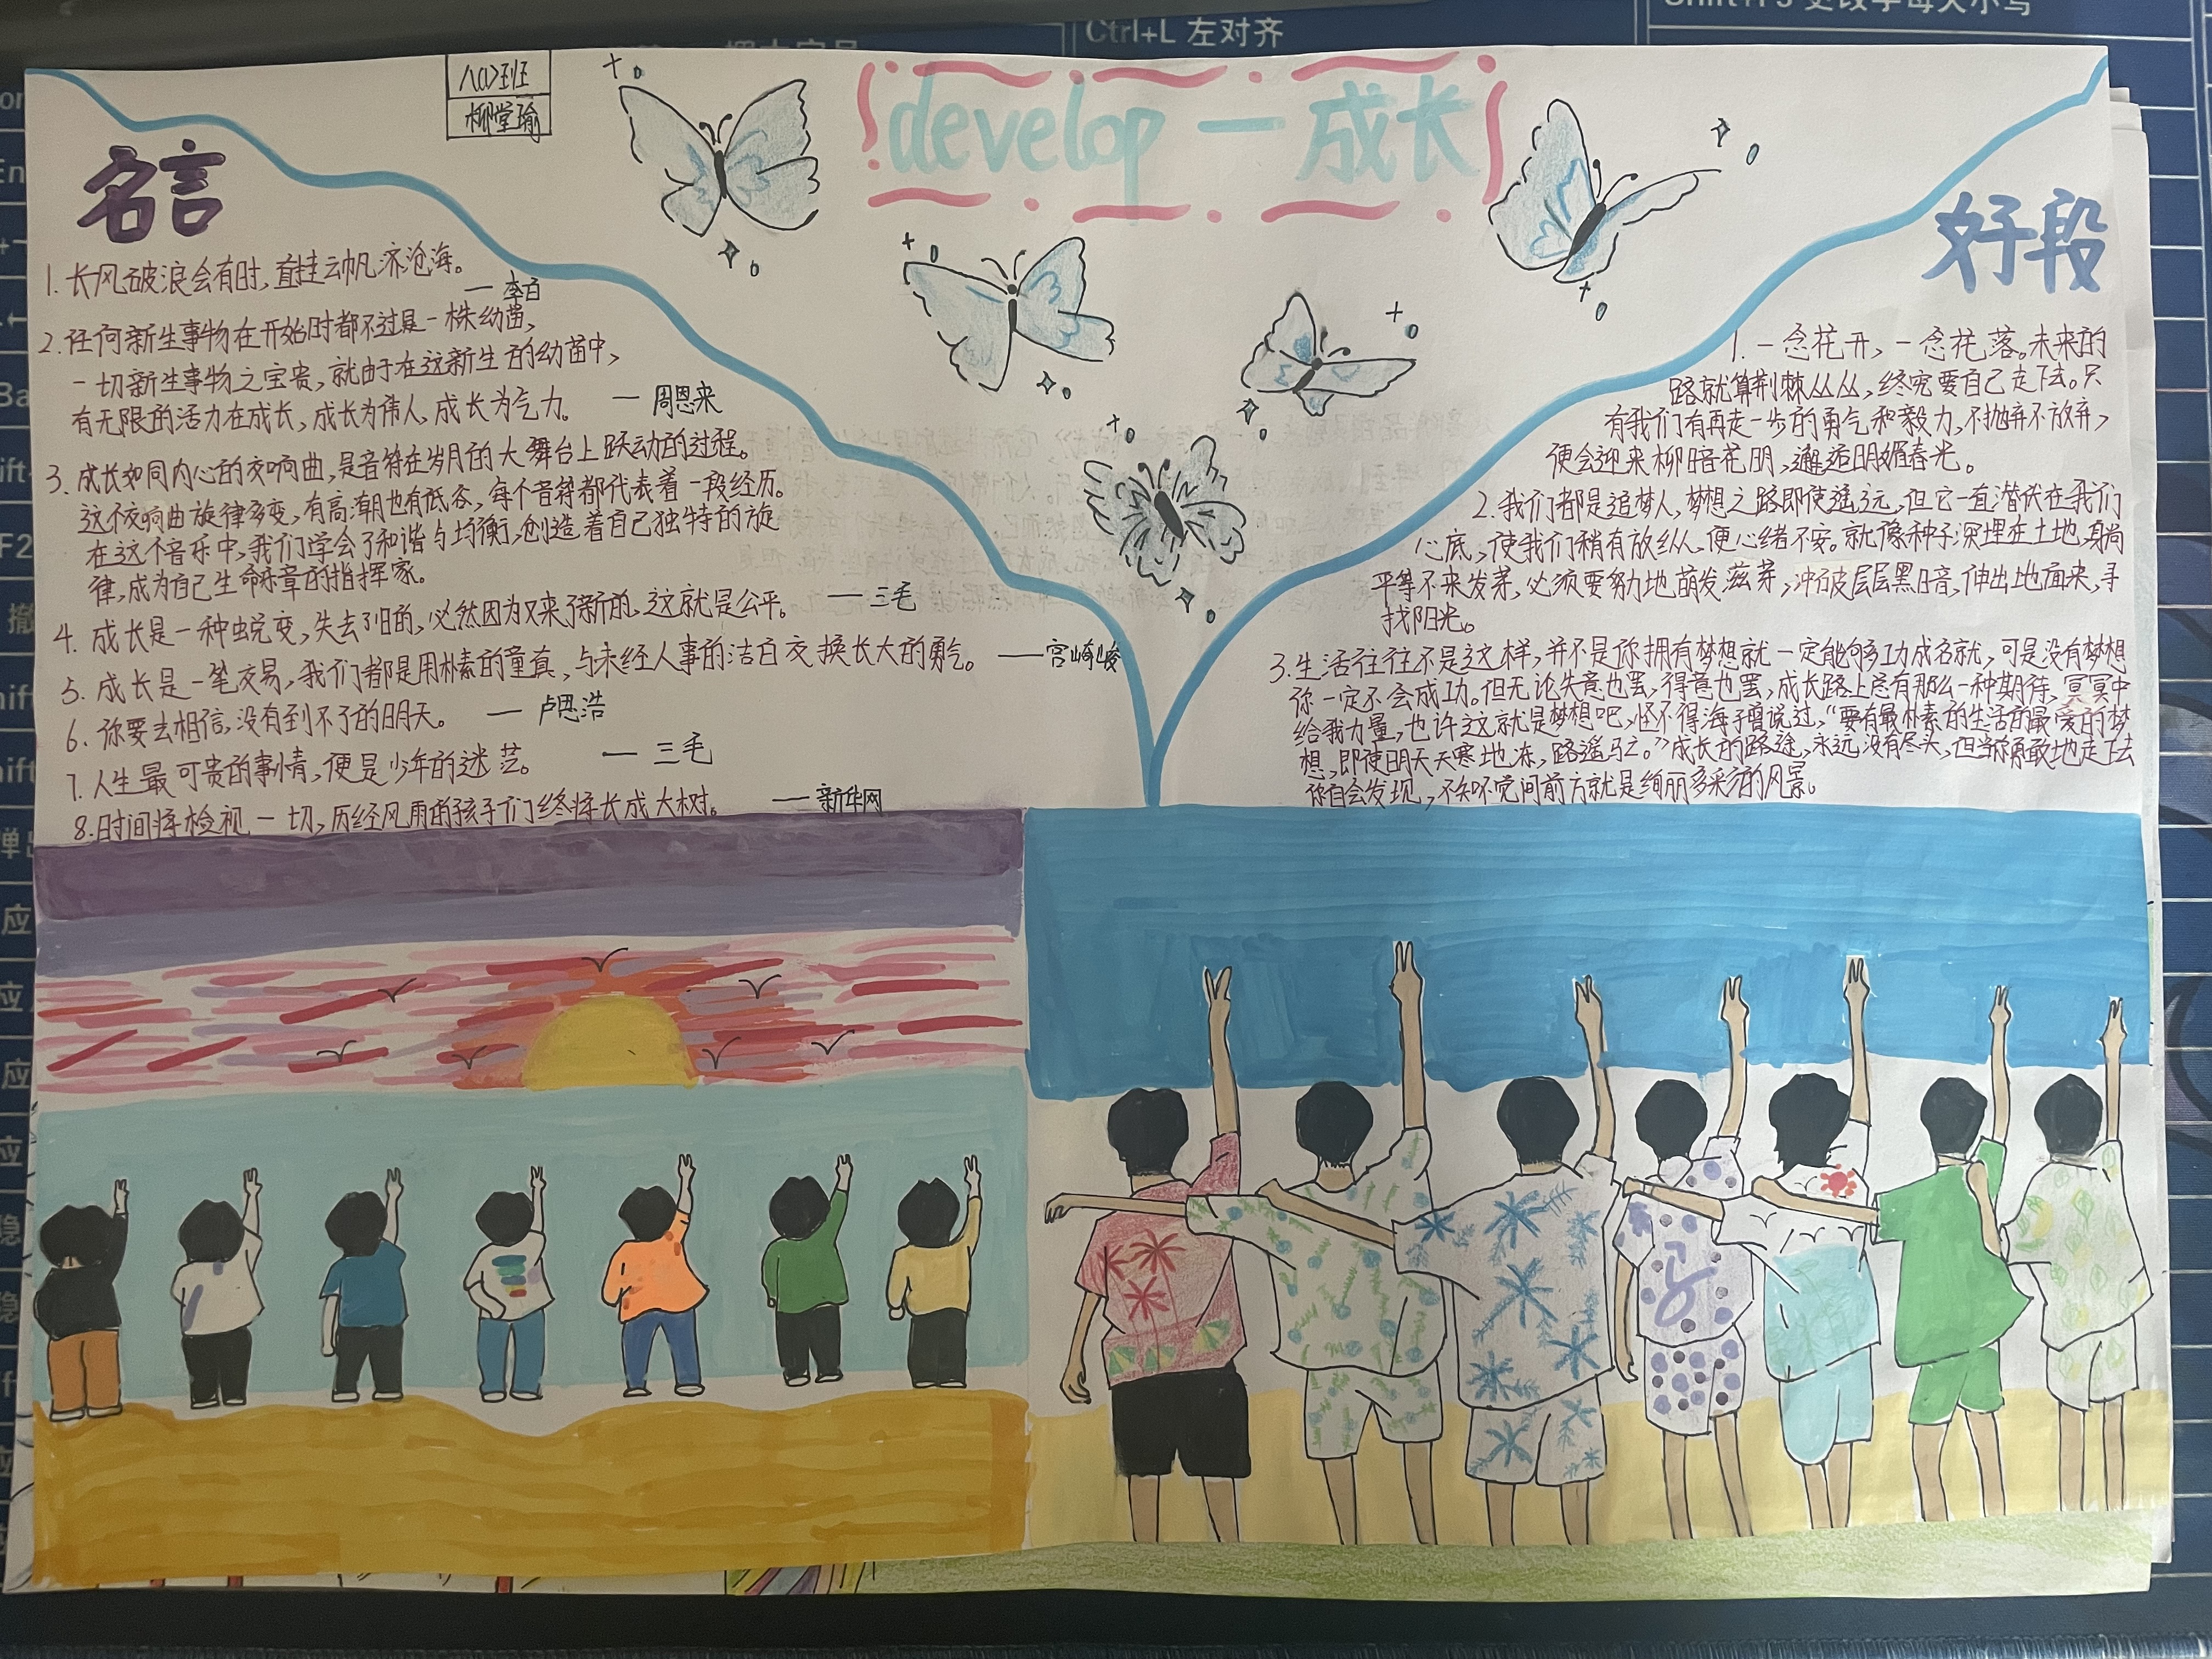 Ctrl+L 左对齐
八(1)班
柳堂瑜
develop — 成长
名言
1. 长风破浪会有时,直挂云帆济沧海。
— 李白
2. 任何新生事物在开始时都不过是一株幼苗,
一切新生事物之宝贵,就由于在这新生的幼苗中,
有无限的活力在成长,成长为伟人,成长为气力。 — 周恩来
3. 成长如同内心的交响曲,是音符在岁月的大舞台上跃动的过程。
这个交响曲旋律多变,有高潮也有低谷,每个音符都代表着一段经历。
在这个音乐中,我们学会了和谐与均衡,创造着自己独特的旋
律,成为自己生命乐章的指挥家。
4. 成长是一种蜕变,失去了旧的,必然因为又来了新的,这就是公平。 — 三毛
5. 成长是一笔交易,我们都是用朴素的童真,与未经人事的洁白交换长大的勇气。 — 宫崎峻
6. 你要去相信,没有到不了的明天。 — 卢思浩
7. 人生最可贵的事情,便是少年的迷茫。 — 三毛
8. 时间将检视一切,历经风雨的孩子们终将长成大树。 — 新华网
好段
1. 一念花开,一念花落。未来的
路就算荆棘丛丛,终究要自己走下去。只
有我们有再走一步的勇气和毅力,不抛弃不放弃,
便会迎来柳暗花明,邂逅明媚春光。
2. 我们都是追梦人,梦想之路即使遥远,但它一直潜伏在我们
心底,使我们稍有放纵,便心绪不安。就像种子深埋在土地,
平等不来发芽,必须要努力地萌发滋芽,冲破层层黑暗,伸出地面来,寻
找阳光。
3. 生活往往不是这样,并不是你拥有梦想就一定能够功成名就,可是没有梦想
你一定不会成功。但无论失意也罢,得意也罢,成长路上总有那么一种期待,冥冥中
给我力量,也许这就是梦想吧,怪不得海子曾说过,“要有最朴素的生活的最爱的梦
想,即使明天天寒地冻,路遥马亡。”成长的路途,永远没有尽头,但当你勇敢地走下去
你自会发现,不知不觉间前方就是绚丽多采的风景。